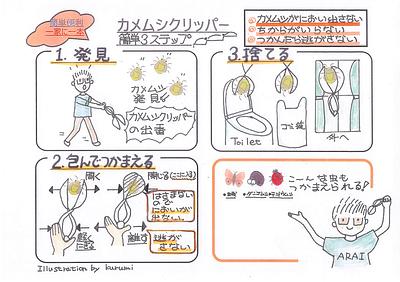 簡単便利
一家に一本
カメムシクリッパー
簡単3ステップ
◎カメムシがにおい出さない
◎ちからがいらない
◎つかんだら逃がさない
1. 発見
カメムシ
発見!
カメムシクリッパー
の出番
2. 包んでつかまえる
開く
閉じる
はさまない
ので
においが
出ない。
軽く
にぎる
離す
逃が
さない
3. 捨てる
Toilet
ゴミ袋
外へ
こーんな虫も
つかまえられる♪
ARAI
Illustration by kurumi